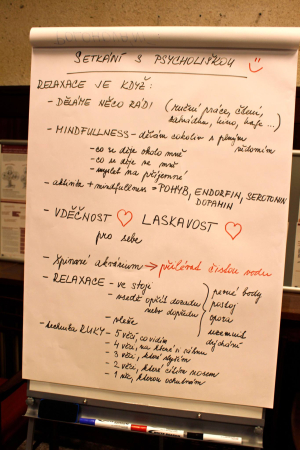 SETKÁNÍ S PSYCHOLIŠKOU
RELAXACE JE KDYŽ:
- DĚLÁME NĚCO RÁDI (ruční práce, čtení,
zahrádka, kino, kafe ...)
- MINDFULLNESS - dělám cokoliv s plným
vědomím
- co se děje okolo mně
- co se děje ve mně
- myslet na příjemné
- aktivita + mindfullness = POHYB, ENDORFIN, SEROTONIN
DOPAMIN
- VDĚČNOST LASKAVOST
pro sebe
- Špinavé akvárium → přilévat čistou vodu
- RELAXACE - ve stoje
- vsedě opřít dozadu
nebo dopředu
- vleže
pevné body
postoj
opora
uvědomit
dýchání
- technika RUKY - 5 věcí, co vidím
4 věci, na které si sáhnu
3 věci, které slyším
2 věci, které cítím nosem
1 věc, kterou ochutnám